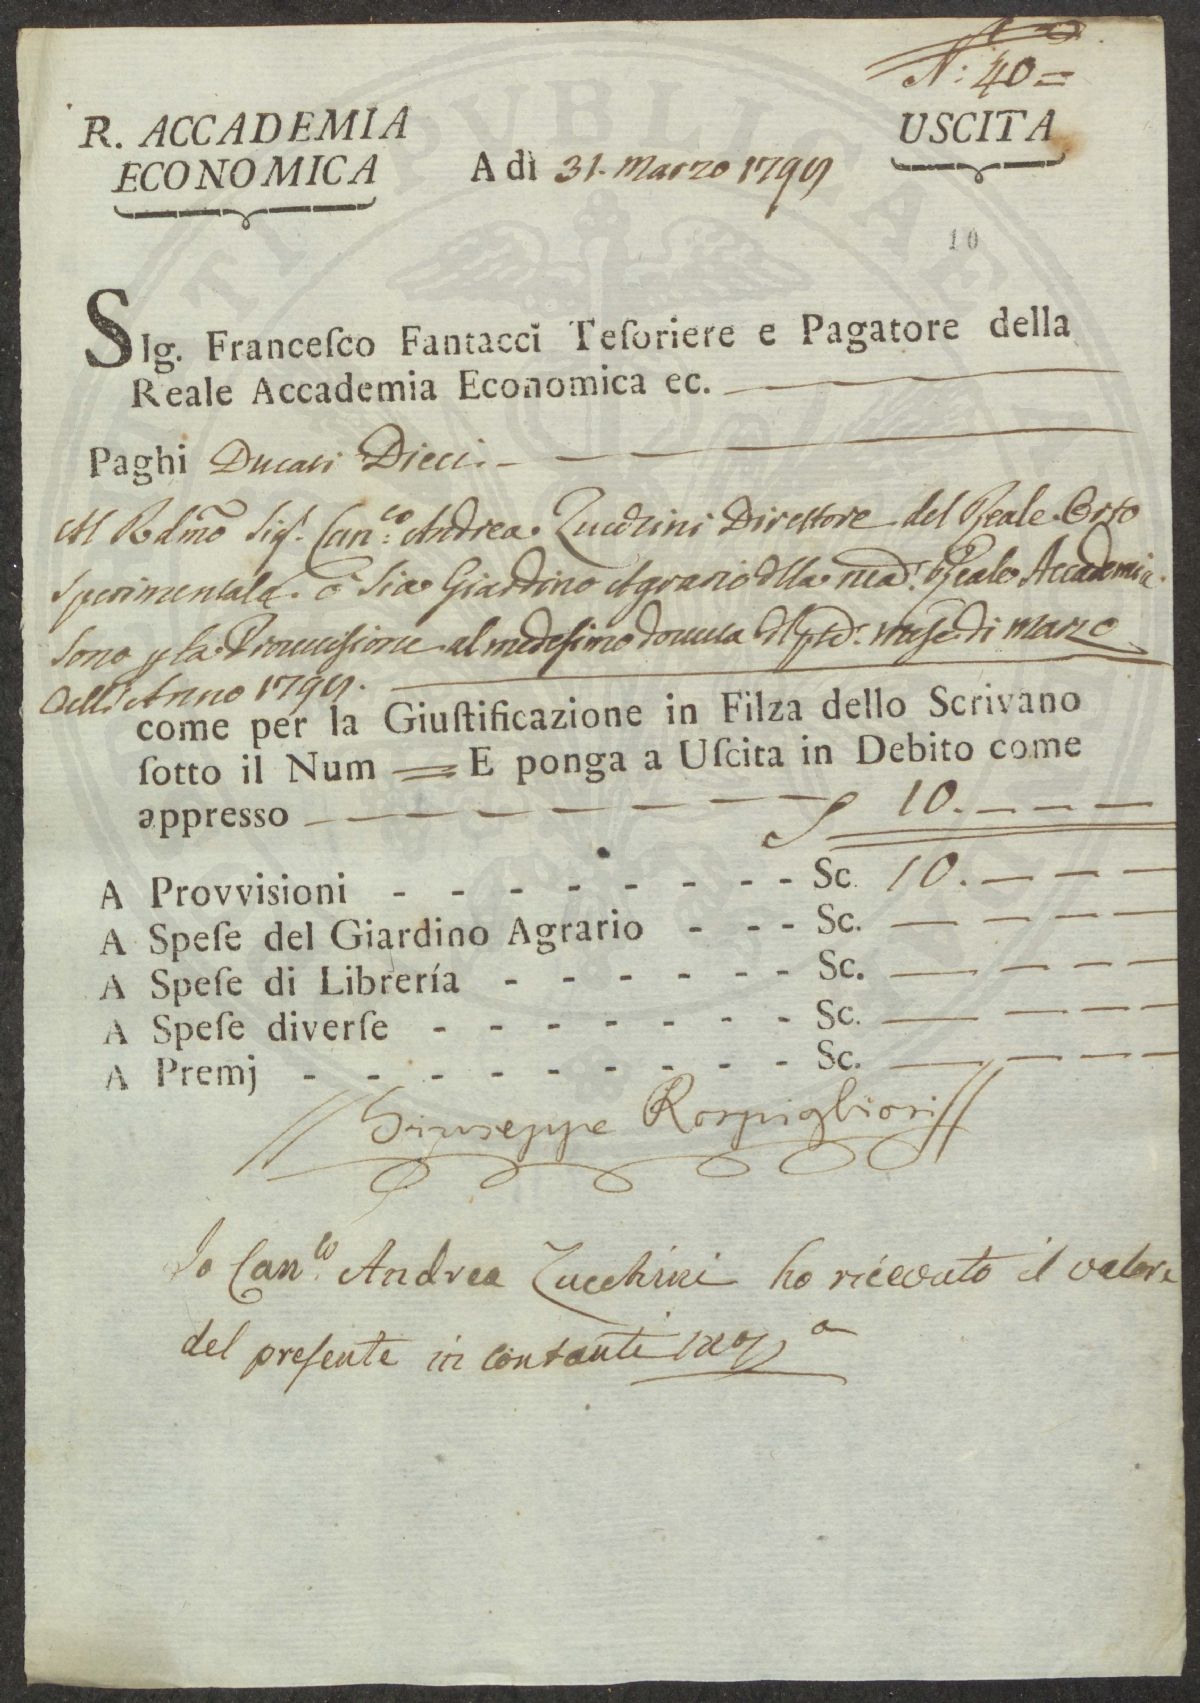 N: 40=
R. ACCADEMIA
ECONOMICA
A dì 31. Marzo 1795
USCITA
10
SIg. Franceſco Fantacci Teſoriere e Pagatore della
Reale Accademia Economica ec.
Paghi Ducati Dieci.
Al Rdmo Sig. Can.co Andrea Zucchini Direttore del Reale Orto
Sperimentale. o Sia Giardino Agrario dlla med. Reale Accademia
Sono p la Provvisione al medesimo dovuta dl pd. mese di Marzo
dell'Anno 1795.
come per la Giuſtificazione in Filza dello Scrivano
ſotto il Num = E ponga a Uſcita in Debito come
appresso 10.
A Provvisioni - - - - - - - - Sc. 10.
A Speſe del Giardino Agrario - - - Sc.
A Speſe di Librería - - - - - - Sc.
A Speſe diverſe - - - - - - - Sc.
A Premj - - - - - - - - - Sc.
Giuseppe Rospigliosi
Io Can.co Andrea Zucchini ho ricevuto il valore
del preſente in contanti